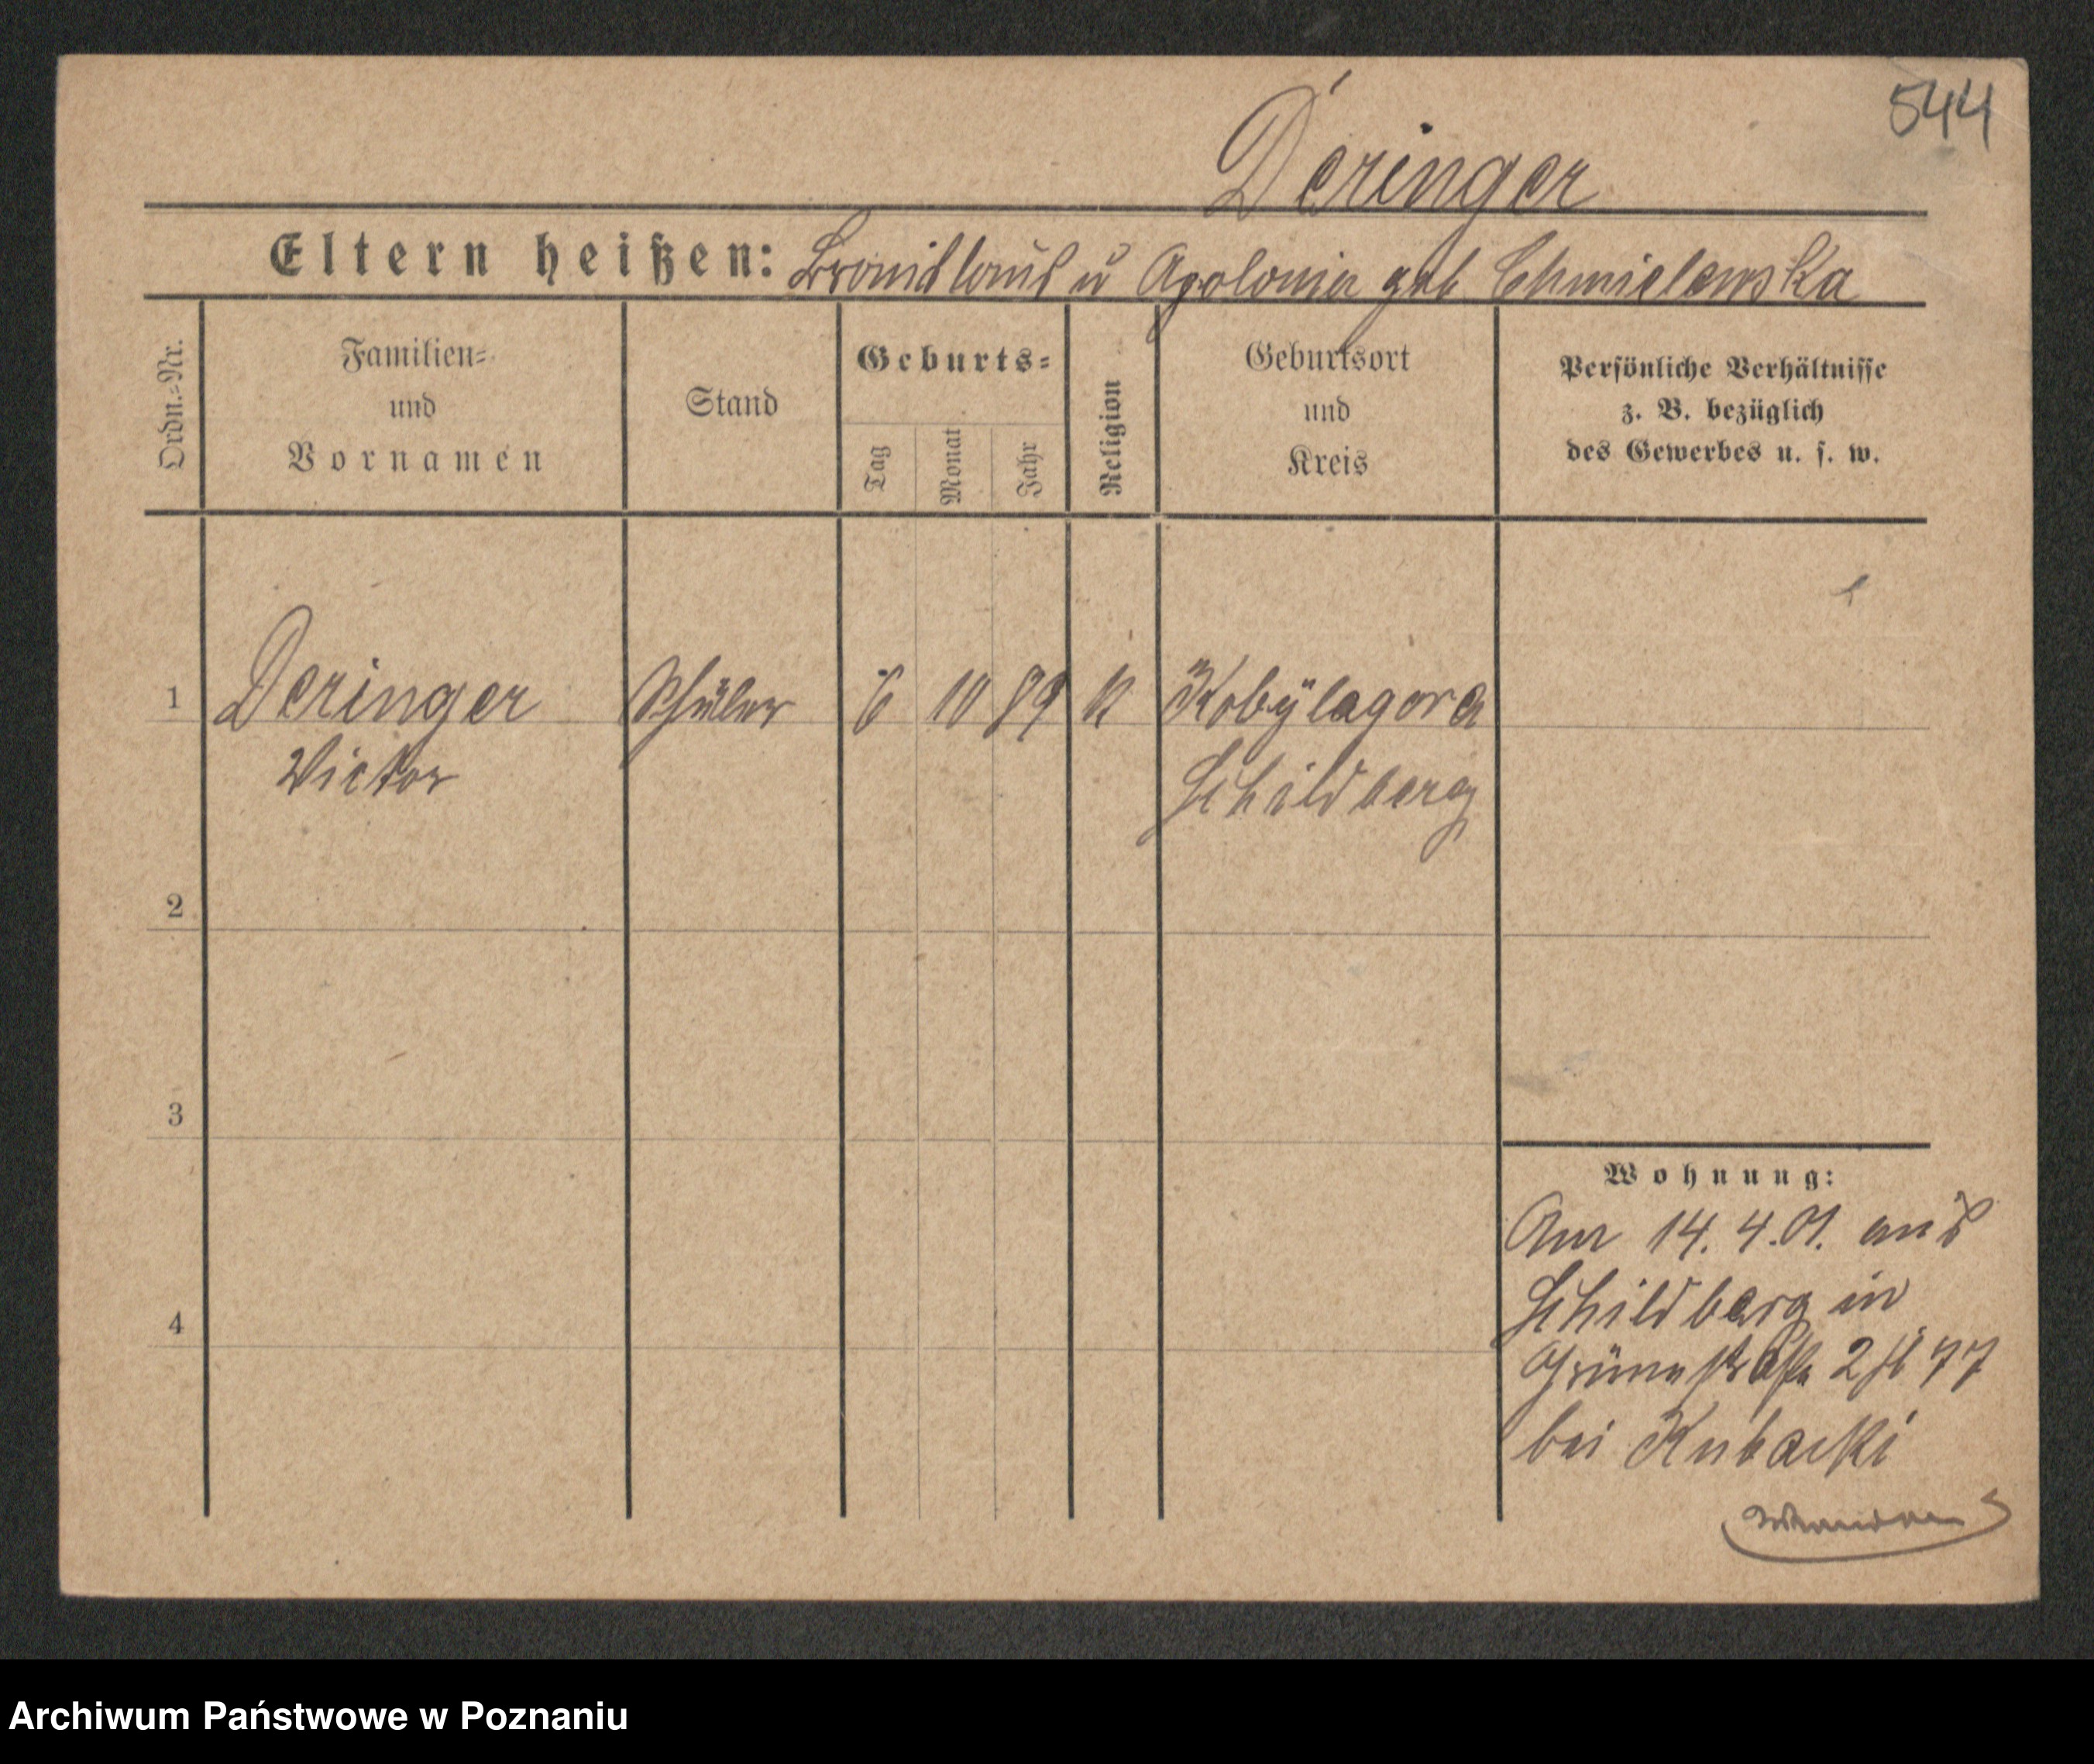 544
Deringer
Eltern heißen: Bronislaus u Apolonia geb Chmielewska
Ordn.-Nr.
Familien-
und
Vornamen
Stand
Geburts-
Tag
Monat
Jahr
Religion
Geburtsort
und
Kreis
Persönliche Verhältnisse
z. B. bezüglich
des Gewerbes u. s. w.
1 Deringer Schüler 6 10 89 K Kobylagora
Victor Schildberg
2
3
4
Wohnung:
Am 14. 4. 01. aus
Schildberg in
Grünestraße 2 77
bei Kubacki
Archiwum Państwowe w Poznaniu